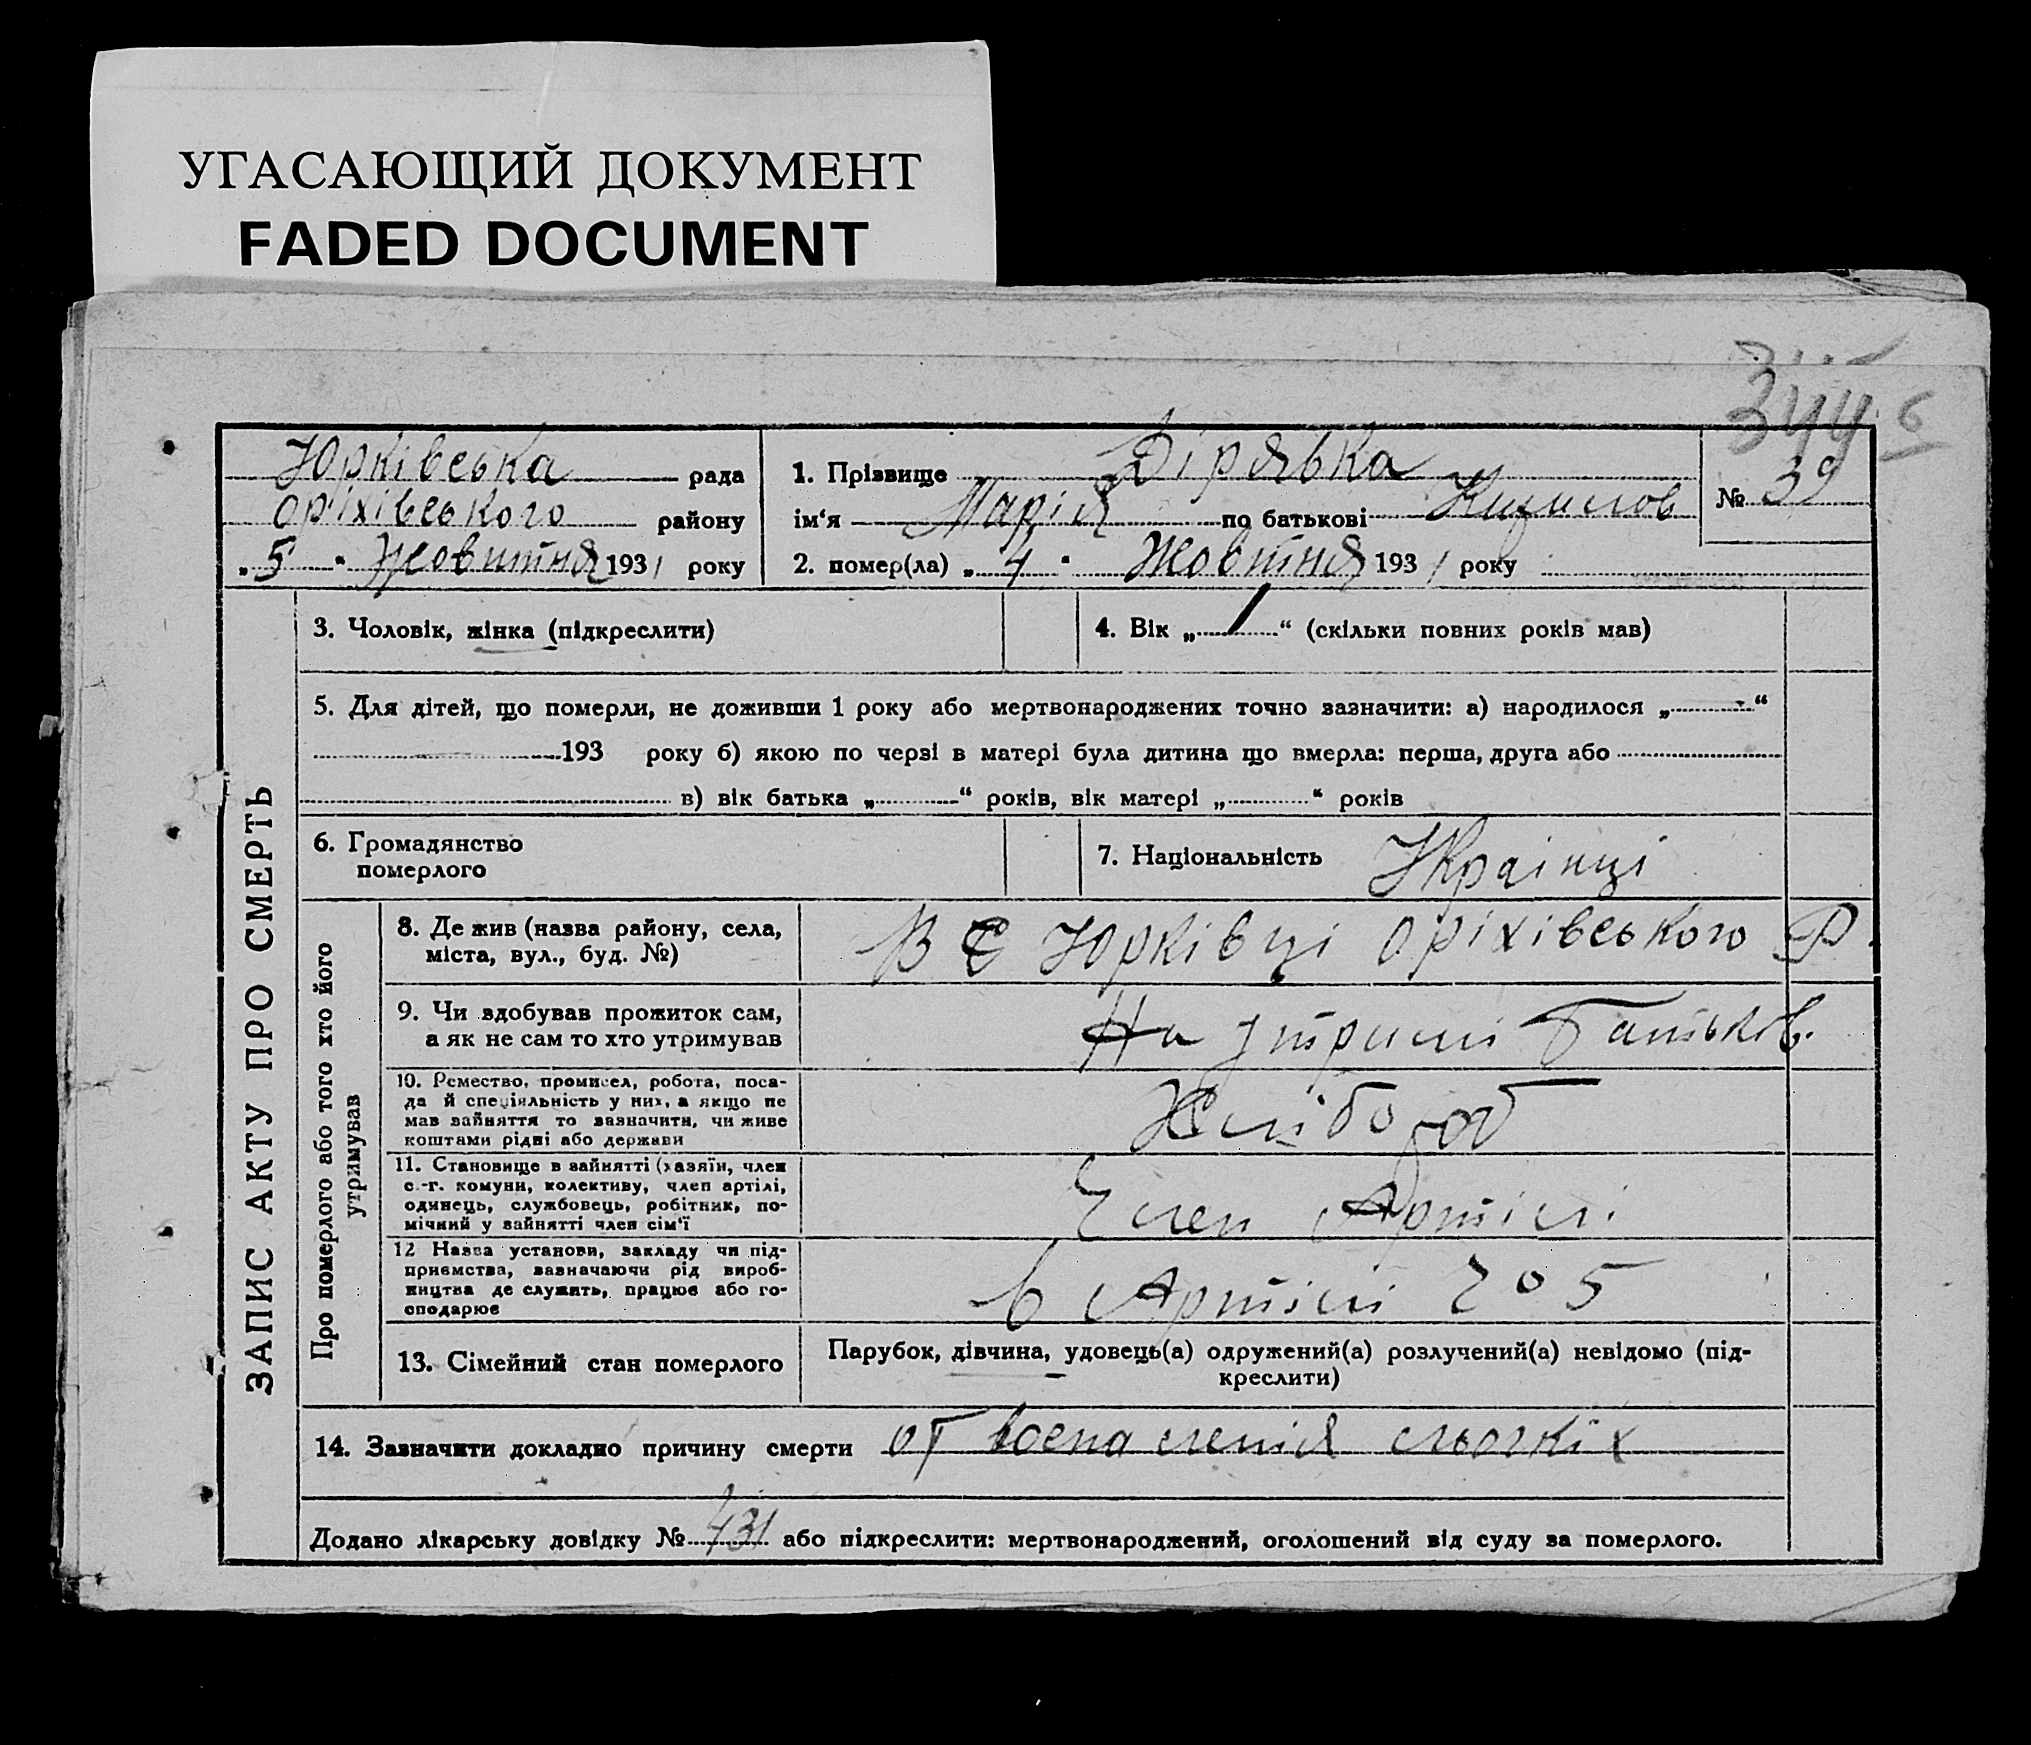 УГАСАЮЩИЙ ДОКУМЕНТ
FADED DOCUMENT
344
6
Юрківська рада
Оріхівського району
„5“ Жовтня 1931 року
1. Прізвище Дірявка
ім‘я Марія по батькові
№ 39
2. помер(ла) „4“ Жовтня 1931 року
ЗАПИС АКТУ ПРО СМЕРТЬ
3. Чоловік, жінка (підкреслити)
4. Вік „1“ (скільки повних років мав)
5. Для дітей, що померли, не доживши 1 року або мертвонароджених точно зазначити: а) народилося „ “
193 року б) якою по черзі в матері була дитина що вмерла: перша, друга або
в) вік батька „ “ років, вік матері „ “ років
6. Громадянство
померлого
7. Національність Українці
Про померлого або того хто його
утримував
8. Де жив (назва району, села,
міста, вул., буд. №)
В С Юрківці Оріхівського Р.
9. Чи здобував прожиток сам,
а як не сам то хто утримував
На утримі Батьків.
10. Ремество, промисел, робота, поса-
да й спеціяльність у них, а якщо не
мав зайняття то зазначити, чи живе
коштами рідні або держави
Хлібороб
11. Становище в зайнятті (хазяїн, член
с.-г. комуни, колективу, член артілі,
одинець, службовець, робітник, по-
мічний у зайнятті член сім‘ї
Член Артілі
12 Назва установи, закладу чи під-
приємства, зазначаючи рід вироб-
ництва де служить, працює або го-
сподарює
в Артілі
13. Сімейний стан померлого
Парубок, дівчина, удовець(а) одружений(а) розлучений(а) невідомо (під-
креслити)
14. Зазначити докладно причину смерти от воспаленія льогкіх
Додано лікарську довідку № 431 або підкреслити: мертвонароджений, оголошений від суду за померлого.